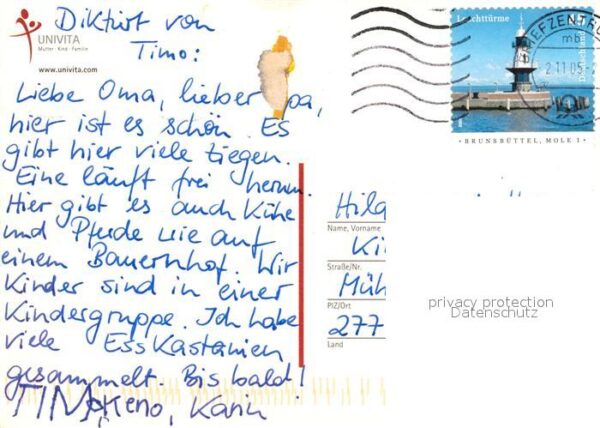 Diktirt von
Timo:
UNIVITA
Mutter · Kind · Familie
www.univita.com
Liebe Oma, lieber pa,
hier ist es schön. Es
gibt hier viele Ziegen.
Eine läuft frei herum.
Hier gibt es auch Kühe
und Pferde wie auf
einem Bauernhof. Wir
Kinder sind in einer
Kindergruppe. Ich habe
viele Esskastanien
gesammelt. Bis bald!
TIMO Keno, Karin
Leuchttürme
Deutschland
BRUNSBÜTTEL, MOLE 1
BRIEFZENTRUM
mb
2.11.05
Hilg
Name, Vorname
Ki
Straße/Nr.
Müh
PlZ/Ort
277
Land
privacy protection
Datenschutz